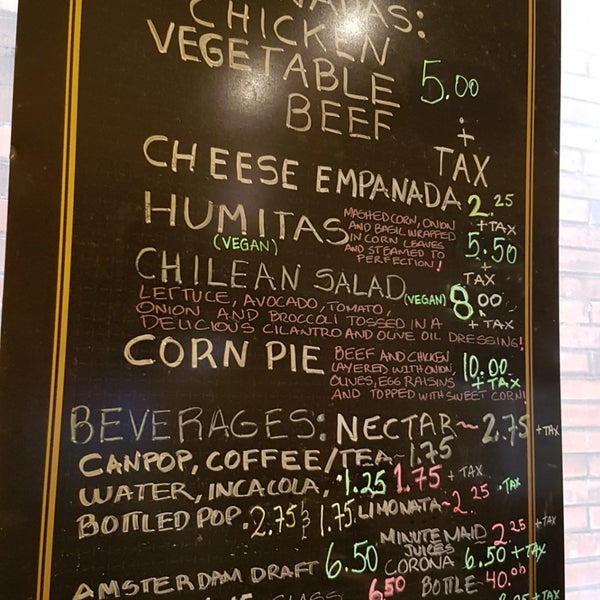 CHICKEN
VEGETABLE
BEEF
5.00
+
TAX
CHEESE EMPANADA 2.25
+TAX
HUMITAS
(VEGAN)
MASHED CORN, ONION
AND BASIL WRAPPED
IN CORN LEAVES
AND STEAMED TO
PERFECTION!
5.50
+
TAX
CHILEAN SALAD (VEGAN) 8.00
+ TAX
LETTUCE, AVOCADO, TOMATO,
ONION AND BROCCOLI TOSSED IN A
DELICIOUS CILANTRO AND OLIVE OIL DRESSING!
CORN PIE
BEEF AND CHICKEN
LAYERED WITH ONION,
OLIVES, EGG RAISINS
AND TOPPED WITH SWEET CORN!
10.00
+ TAX
BEVERAGES: NECTAR~ 2.75 +TAX
CANPOP, COFFEE/TEA~1.75
WATER, INCACOLA, 1.25 1.75 + TAX
BOTTLED POP. 2.75 & 1.75 LIMONATA~2.25 +TAX
MINUTE MAID
JUICES 2.25 +TAX
AMSTERDAM DRAFT 6.50 CORONA 6.50 +TAX
GLASS 6.50 BOTTLE- 40.00
+TAX